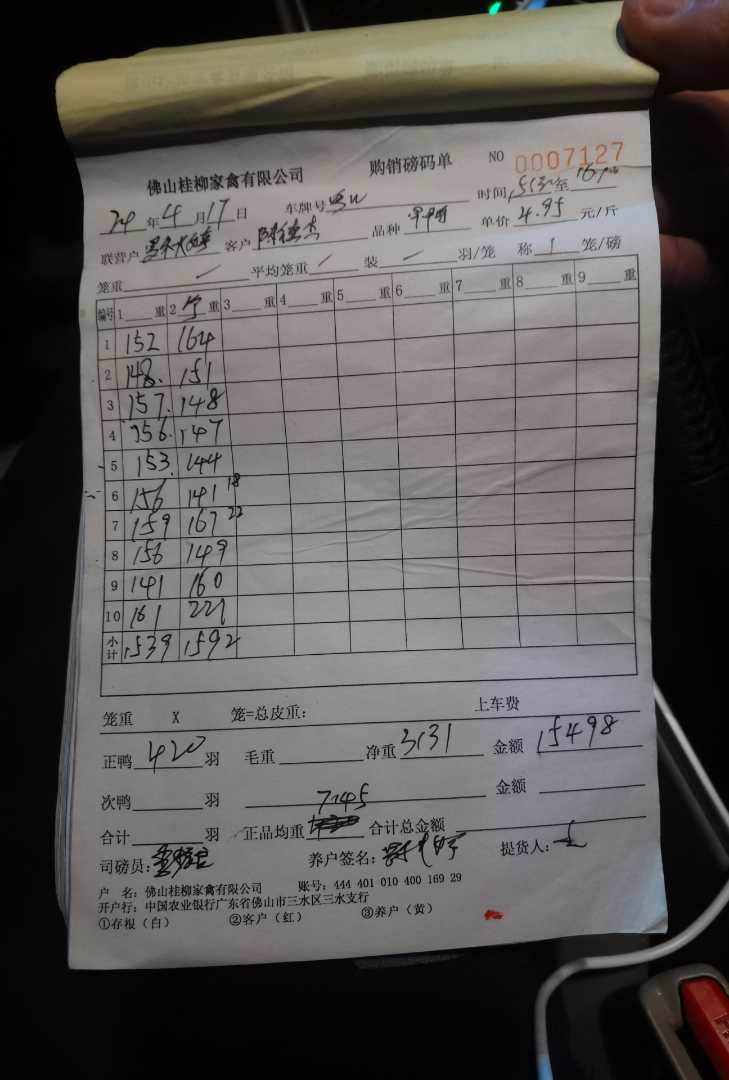 佛山桂柳家禽有限公司 购销磅码单 NO 0007127
24 年 4 月 17 日 车牌号 时间 至
联营户 客户 陈 杰 品种 单价 4.95 元/斤
笼重 平均笼重 装 羽/笼 称 1 笼/磅
编号 1 重 2 重 3 重 4 重 5 重 6 重 7 重 8 重 9 重
1 152 164
2 148. 151
3 157. 148
4 156. 147
5 153. 144
6 156 141 18
7 159 167 22
8 156 149
9 141 160
10 161 221
小计 1539 1592
笼重 X 笼=总皮重: 上车费
正鸭 420 羽 毛重 净重 3131 金额 15498
次鸭 羽 7.45 金额
合计 羽 正品均重 合计总金额
司磅员: 养户签名: 提货人:
户 名: 佛山桂柳家禽有限公司 账号: 444 401 010 400 169 29
开户行: 中国农业银行广东省佛山市三水区三水支行
①存根(白) ②客户(红) ③养户(黄)